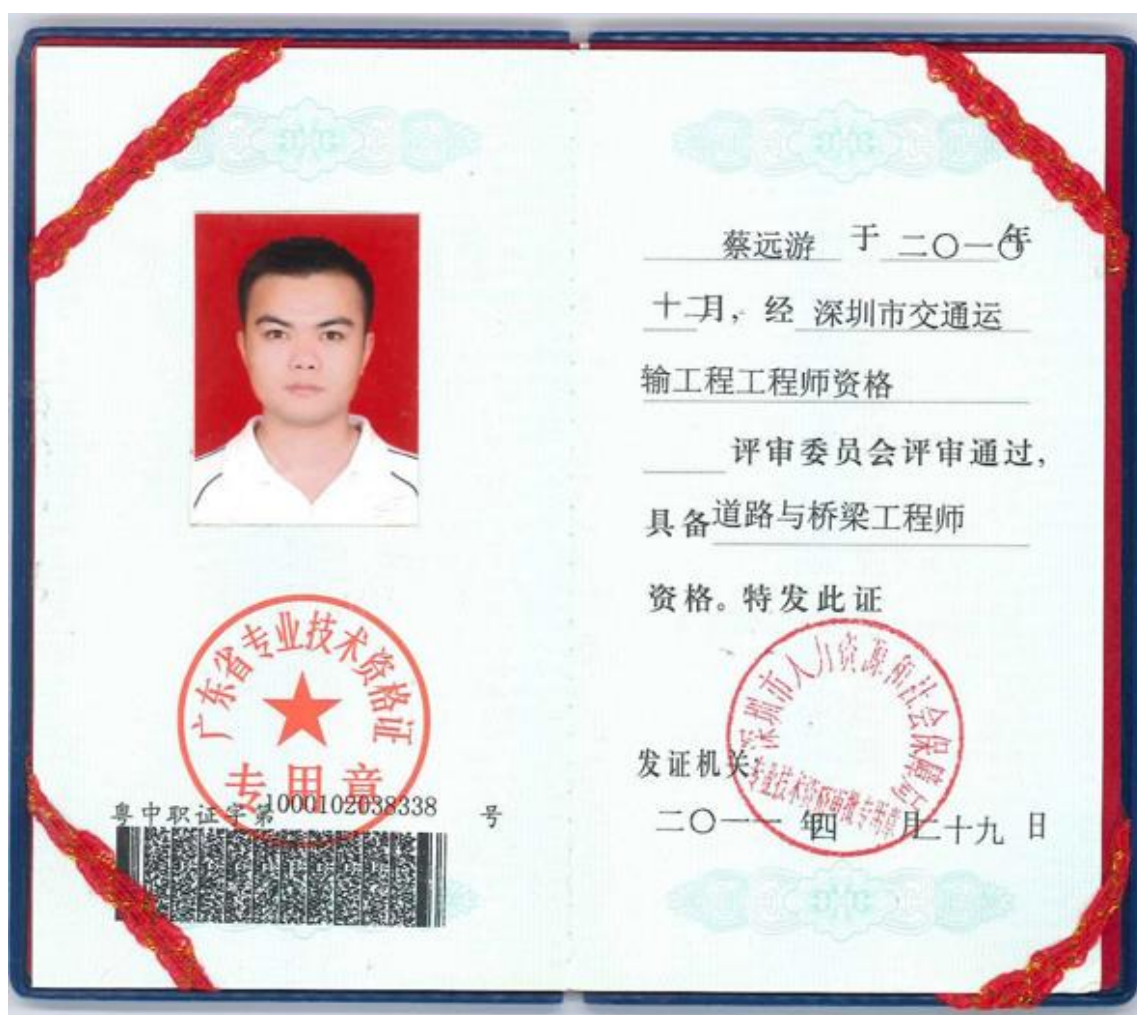 广东省专业技术资格证
专用章
粤中职证字第1000102038338 号
蔡远游 于 二〇一〇年
十二月，经 深圳市交通运
输工程工程师资格
评审委员会评审通过，
具备道路与桥梁工程师
资格。特发此证
深圳市人力资源和社会保障局
发证机关：
二〇一一 年四 月二十九 日